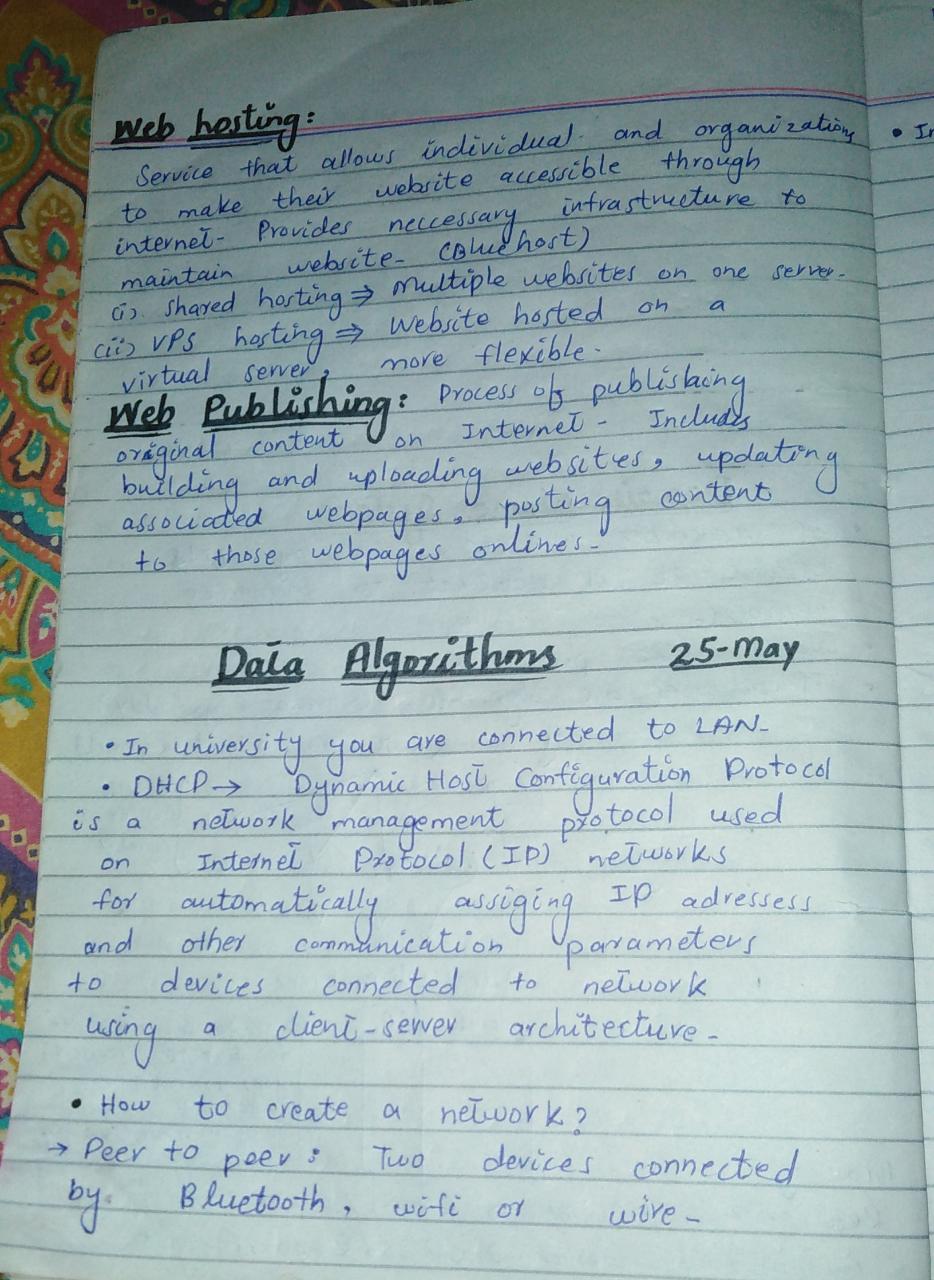 Web hosting:
Service that allows individual and organizations
to make their website accessible through
internet. Provides neccessary infrastructure to
maintain website. (Bluehost)
(i). Shared hosting ⇒ Multiple websites on one server.
(ii) VPS hosting ⇒ Website hosted on a
virtual server, more flexible.
Web Publishing: Process of publishing
original content on Internet. Includes
building and uploading websites, updating
associated webpages, posting content
to those webpages onlines.
Data Algorithms 25-May
• In university you are connected to LAN.
• DHCP → Dynamic Host Configuration Protocol
is a network management protocol used
on Internet Protocol (IP) networks
for automatically assiging IP adressess
and other communication parameters
to devices connected to network
using a client-server architecture.
• How to create a network?
→ Peer to peer: Two devices connected
by. Bluetooth, wifi or wire.
• In